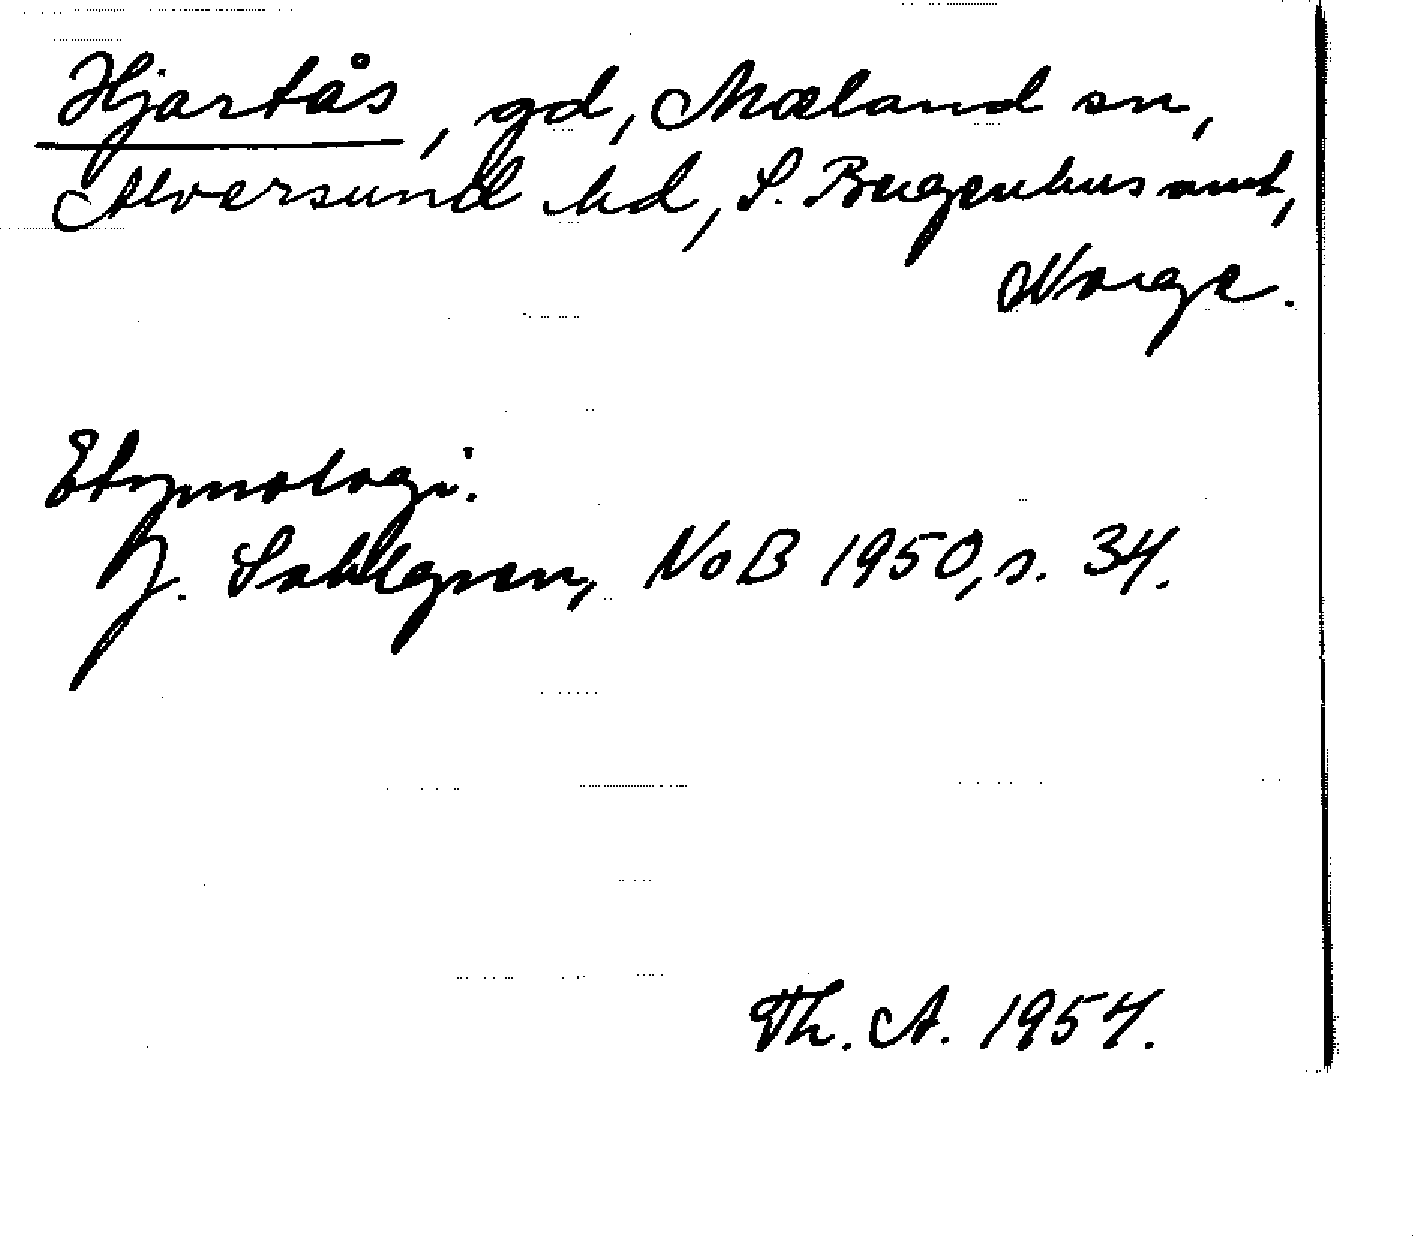 Hjartås, gd, Mæland sn,
Alversund hd, S. Bergenhus amt,
Norge.
Etymologi.
J. Sahlgren, NoB 1950, s. 34.
Th. A. 1954.